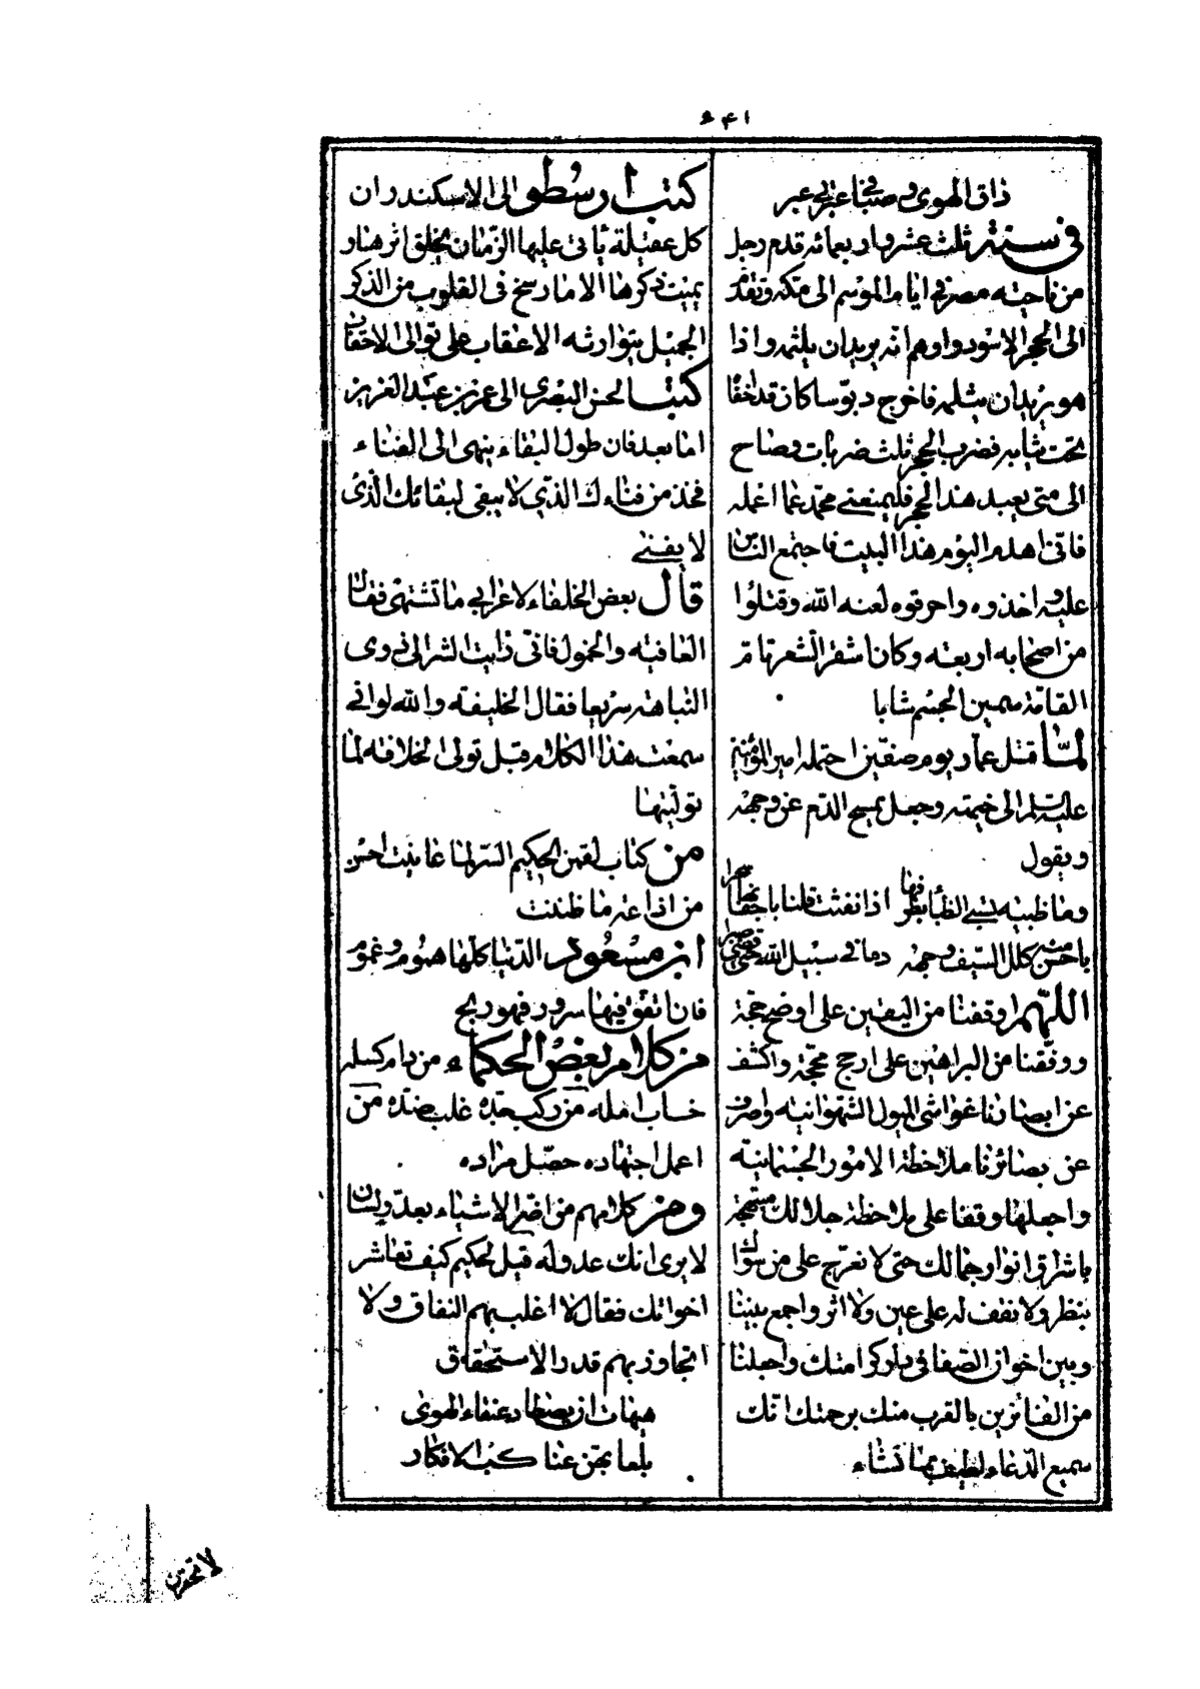 ذاق الهوى وصبا في عبر عبر
فى سنة ثلث عشر واربعمائه قدم رجل
من ناحيته مصر فى ايام الموسم الى مكه وتقدم
الى الحجر الاسود واوهم انه يريد ان يلثمه واذا
هو يريد ان يثلمه فاخرج دبوسا كان قد اخفا
تحت ثيابه فضرب الحجر ثلث ضربات وصاح
الى متى يعبد هذا الحجر فليمنعنى محمد عما اعمله
فانى اهدم اليوم هذا البيت فاجتمع الناس
عليه واخذوه واحرقوه لعنه الله وقتلوا
من اصحابه اربعته وكان اشقر الشعر تام
القامة سمين الجسم شابا
لمّا قتل عمار يوم صفين احتمله امير المؤمنين
عليه السلم الى خيمته وجعل يمسح الدم عن وجهه
ويقول
وما ظبيته تسبى الظبا بطرفها اذا نفثت قلنا باجفانها سحرا
باحسن منه كلل السيف وجهه دما فى سبيل الله حتى قضى صبرا
اللهم اوقفنا من اليقين على اوضح حجة
ووفقنا من البراهين على ارجح محجة واكشف
عن ابصارنا غواشى الميول الشهوانيه واصرف
عن بصائرنا ملاحظة الامور الجسمانيته
واجعلها وقفا على ملاحظة جلالك مبتهجة
باشراق انوار جمالك حتى لا نعرج على من سواك
بنظر ولا نقف له على عين ولا اثر واجمع بيننا
وبين اخوان الصفا فى دار كرامتك واجعلنا
من الفائزين بالقرب منك برحمتك انك
سميع الدعاء لطيف بما تشاء
كتب ارسطو الى الاسكندر ان
كل عقيلة يأتى عليها الزمان يخلق اثرها و
يميت ذكرها الا ما رسخ فى القلوب من الذكر
الجميل يتوارثه الاعقاب على توالى الاحقاب
كتب الحسن البصرى الى عزيز عبد العزيز
اما بعد فان طول البقاء ينهى الى الفناء
فخذ من فناءك الذى لا يبقى لبقائك الذى
لا يفنى
قال بعض الخلفاء لاعرابى ما تشتهى فقال
العافيته والخمول فانى رايت الشر الى ذوى
النباهته سريعا فقال الخليفته والله لو انى
سمعت هذا الكلام قبل تولى الخلافه لما
توليتها
من كتاب لقمن الحكيم السر لما عاينت احسن
من اذاعته ما ظننت
ابن مسعود الدنيا كلها هموم وغموم
فان اتفق فيها سرور فهو ربح
من كلام بعض الحكماء من دام كسله
خاب امله من ركب جده غلب ضده من
اعمل اجتهاده حصل مراده
ومن كلامهم من اضر الاشياء بعدوك ان
لا يرى انك عدو له قيل لحكيم كيف تعاشر
اخوانك فقال لا اغلب بهم النفاق ولا
اتجاوز بهم قدر الاستحقاق
هيهات ان يصطاد عنقاء الهوى
بلعابهن عناكب الافكار
لا تحقرن